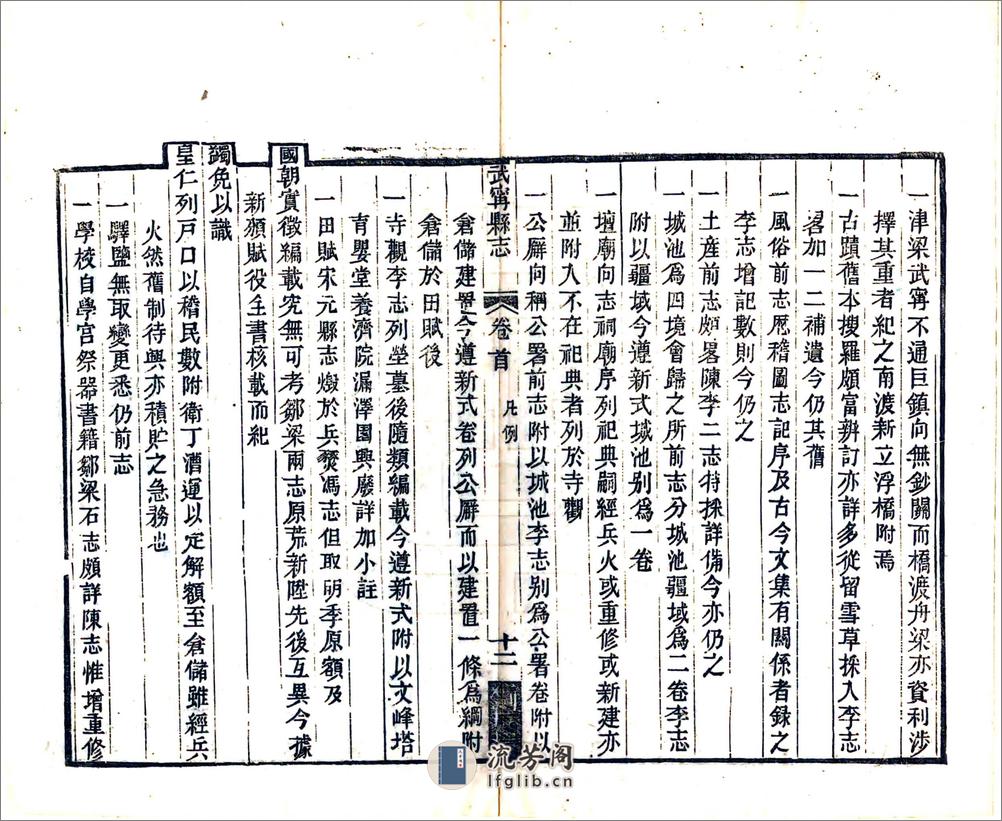 一津梁武寧不通巨鎮向無鈔關而橋渡舟梁亦資利涉
擇其重者紀之南渡新立浮橋附焉
一古蹟舊本搜羅頗富辨訂亦詳多從留雪草採入李志
畧加一二補遺今仍其舊
一風俗前志歷稽圖志記序及古今文集有關係者錄之
李志增記數則今仍之
一土産前志頗畧陳李二志特採詳備今亦仍之
一城池爲四境會歸之所前志分城池疆域爲二卷李志
附以疆域今遵新式城池别爲一卷
一壇廟向志祠廟序列祀典嗣經兵火或重修或新建亦
並附入不在祀典者列於寺觀
一公廨向稱公署前志附以城池李志别爲公署卷附以
武寧縣志
卷首
凡例
十二
倉儲建置今遵新式卷列公廨而以建置一條爲綱附
倉儲於田賦後
一寺觀李志列塋墓後隨類編載今遵新式附以文峰塔
育嬰堂養濟院漏澤園興廢詳加小註
一田賦宋元縣志燬於兵燹馮志但取明季原額及
國朝實徵編載究無可考鄒梁兩志原荒新陞先後互異今據
新頒賦役全書核載而紀
蠲免以識
皇仁列戸口以稽民數附衛丁漕運以定解額至倉儲雖經兵
火然舊制待興亦積貯之急務也
一驛鹽無取變更悉仍前志
一學校自學宫祭器書籍鄒梁石志頗詳陳志惟增重修
流芳阁
lfglib.cn